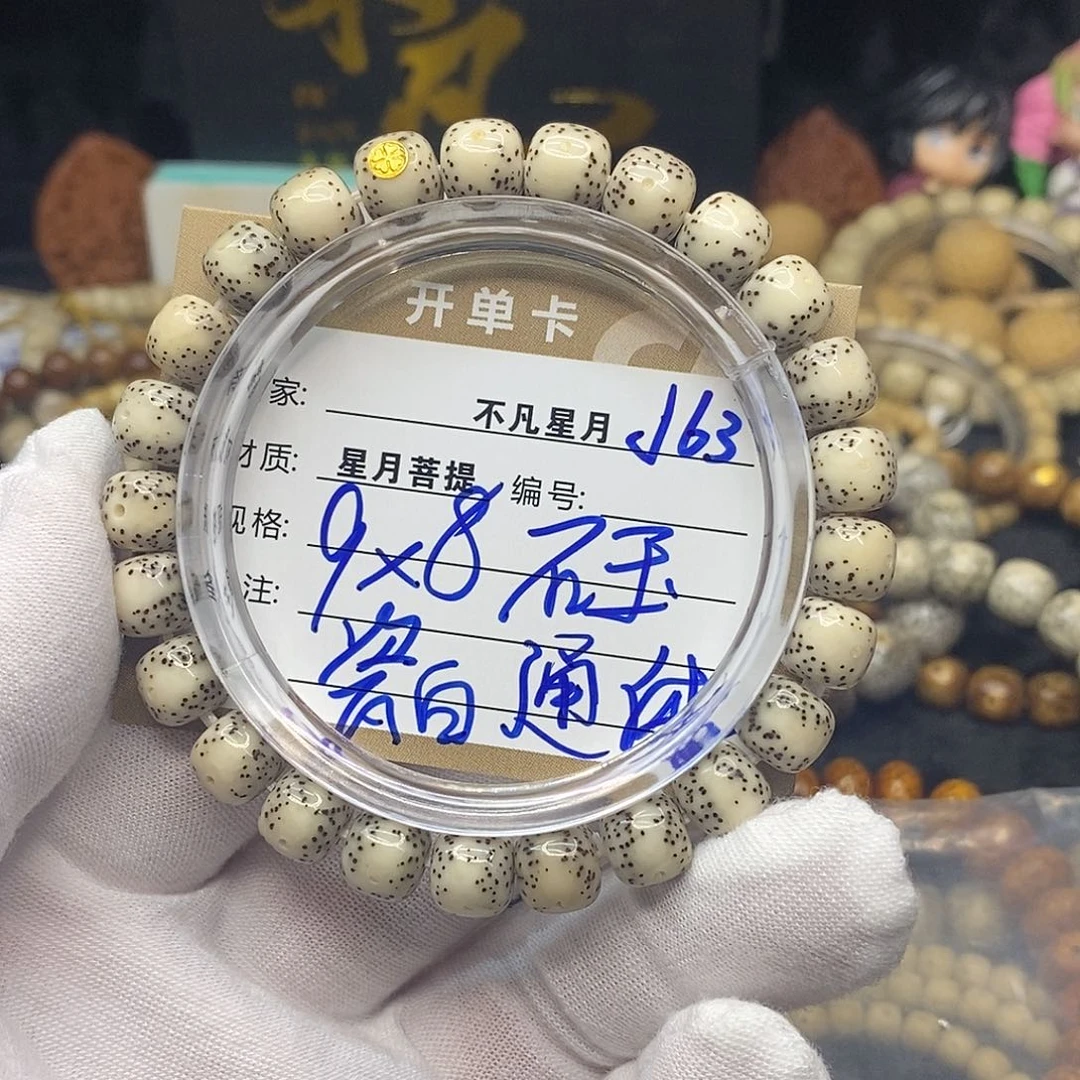 开单卡
家: 不凡星月 J163
材质: 星月菩提 编号:
规格: 9x8 石玉
注:
瓷白 通货